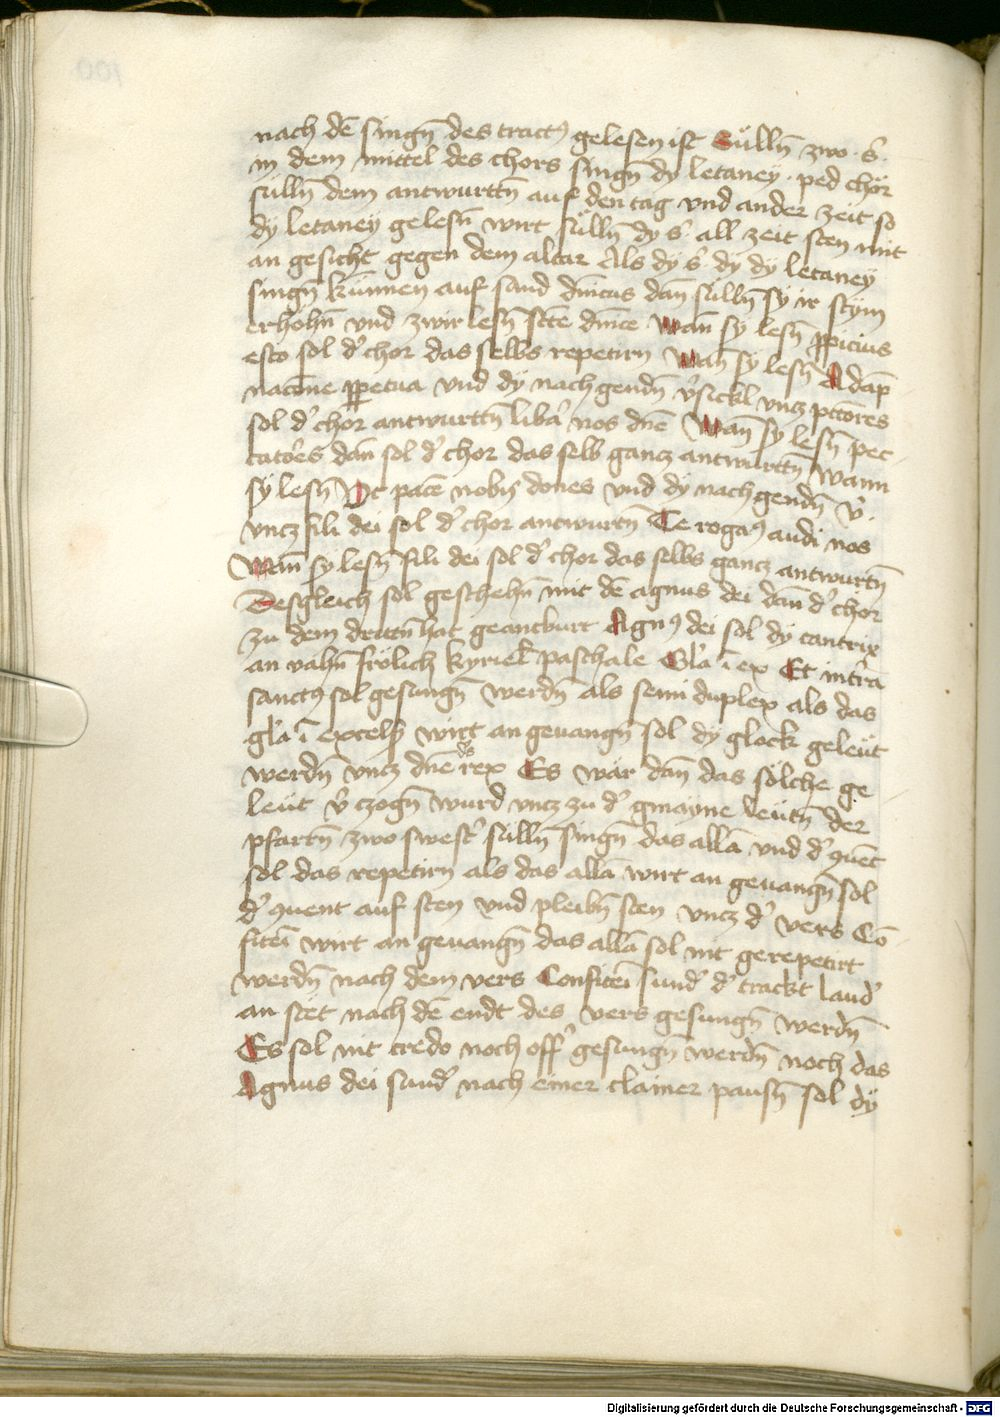 nach dē singn̄ des tractꝰ gelesen ist Süllñ zwo · S̄ ·
in dem mittel des chors singn̄ dy letaney · ped chör
süllñ dem antwurttñ auf den tag vnd ander zeit so
dy letaney gelesñ wirt süllñ dy s̄ all zeit sten mit
an gesicht gegen dem altar Als dy s̄ · dy dy letaney
singn̄ künnen auf sand dnicus dan̄ süllñ sy ir stym
erhohñ vnd zwir lesñ sctē dnice Wan̄ sy lesñ ꝓpicius
esto sol dʼ chor das selbs repetirn Wan̄ sy lesñ A dāp
nacōne ꝑpetua vnd dy nach gendñ vʼsickl vncz pctōres
sol dʼ chor antwurttñ libʼa nos dnē Wan̄ sy lesñ pec
catoʼes dan̄ sol dʼ chor das selb gancz antwurttñ Wann
sy lesñ Vt pacē nobiꝫ dones vnd dy nach gendñ vʼ ·
vncz fili dei sol dʼ chor antwurtñ Te rogaꝰ audi nos
Wan̄ sy lesñ fili dei sol dʼ chor das selbs gancz antwurtñ
Desgleich sol geschehñ mit dē agnus dei dan̄ dʼ chor
zu dem drittñ hat geantburt Agnꝰ dei sol dy cantrix
an vahñ frölich kyriel̄ paschale Glʼa ī ex Et intʼra
sanctꝰ sol gesungn̄ werdñ als semi duplex als das
glʼa ī excelsꝭ wirt an geuangn̄ sol dy glock geleüt
werdñ vncz dnē ds rex Es wär dan̄ das sölche ge
leüt vʼ czogñ wurd vncz zu dʼ gmayne leütñ der
pfarrñ zwo swestʼ süllñ singn̄ das allā vnd dʼ ꝯuēt
sol das repetirn als das allā wirt an geuangn̄ sol
dʼ ꝯuent auf sten vnd pleibñ sten vncz dʼ vers Cō
fiteī wirt an geuangn̄ das allā sol nit gerepetirt
werdñ nach dem vers Confiteī sundʼ dʼ trackt laudʼ
an stet nach dē endt des vers gesungn̄ werdñ
Es sol nit credo noch offʼ gesungn̄ werdñ noch das
Agnus dei sundʼ nach einer clainer pausñ sol dy
Digitalisierung gefördert durch die Deutsche Forschungsgemeinschaft - DFG